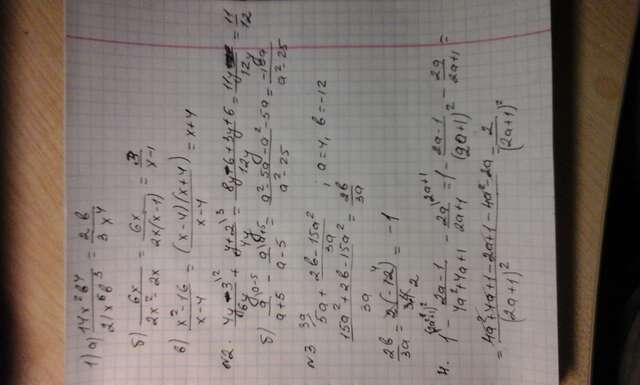 1) а) 14x²b⁴/21x⁶b³ = 2b/3x⁴
б) 6x/2x²-2x = 6x/2x(x-1) = 3/x-1
в) x²-16/x-4 = (x-4)(x+4)/x-4 = x+4
№2. 4y-3\²/6y + y+2\³/4y = 8y-6+3y+6/12y = 11y/12y = 11/12
б) a\a-5/a+5 - a\a+5/a-5 = a²-5a-a²-5a/a²-25 = -10a/a²-25
№3 3a/5a + 2b-15a²/3a ; a=4, b=-12
15a²+2b-15a²/3a = 2b/3a
2b/3a = 2(-12)/3·4 = -1
4. (2a+1)²/1 - 2a-1/4a²+4a+1 - 2a\2a+1/2a+1 = 1 - 2a-1/(2a+1)² - 2a/2a+1 =
= 4a²+4a+1-2a+1-4a²-2a/(2a+1)² = 2/(2a+1)²